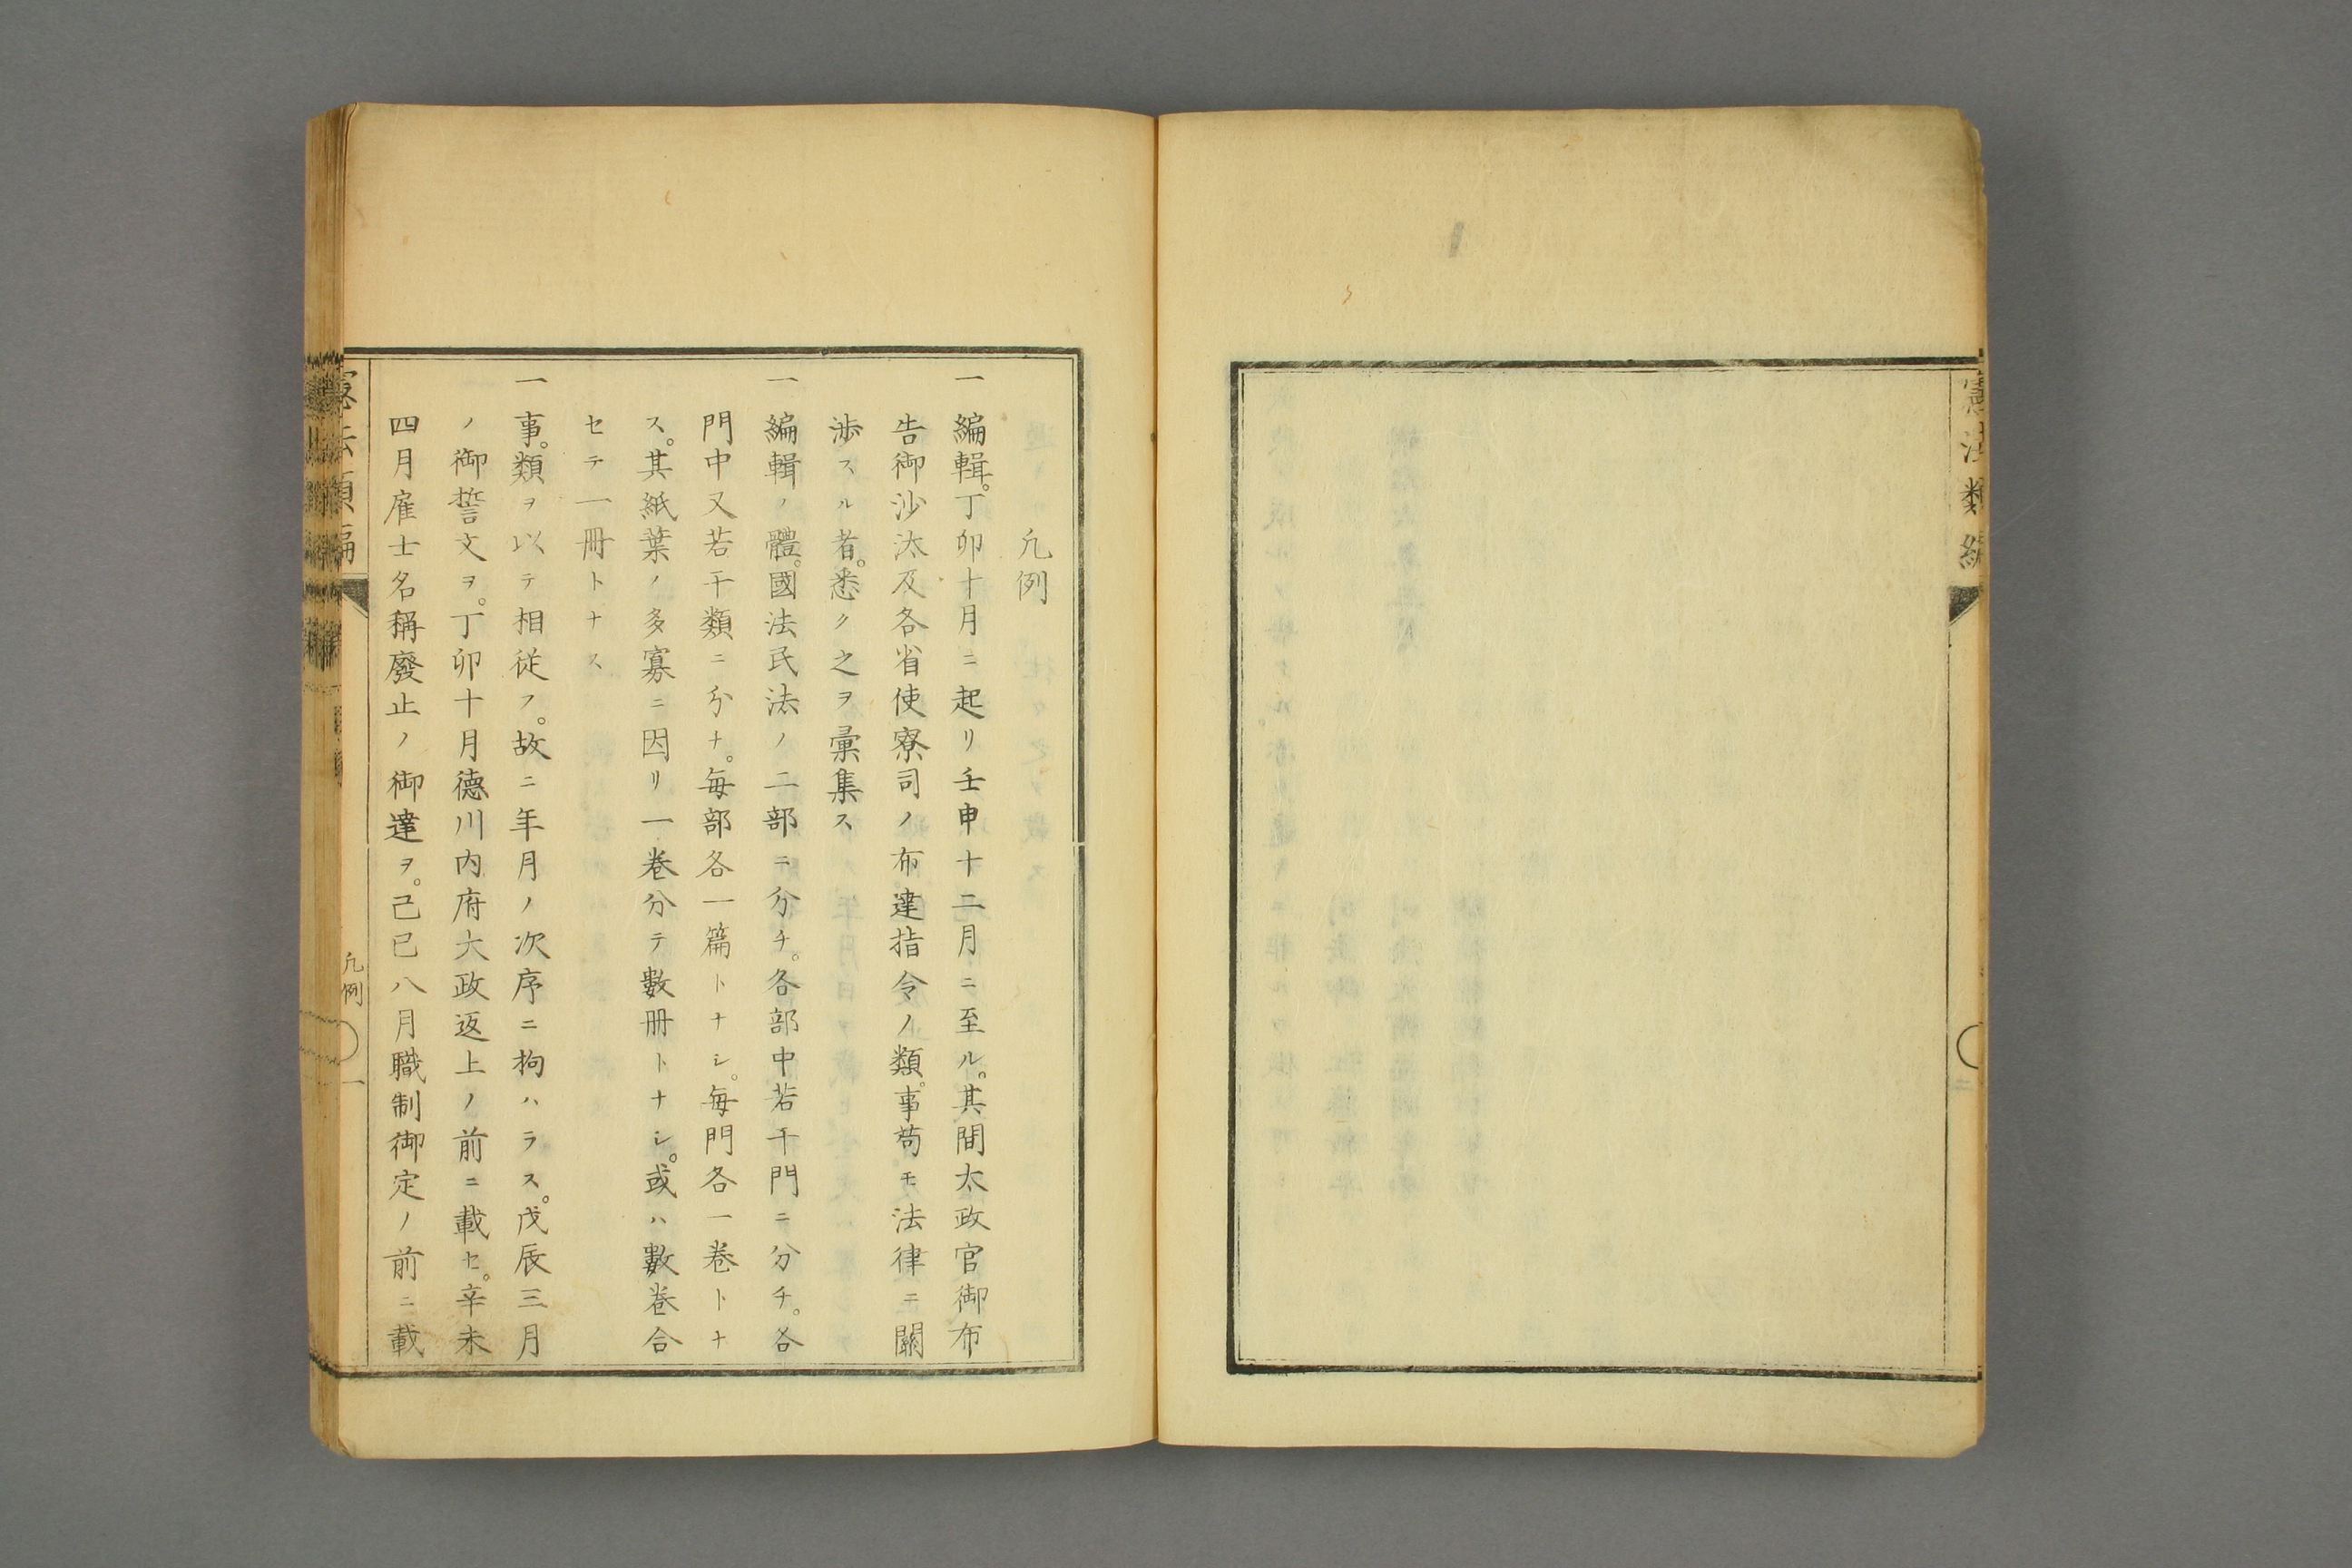 憲法類編
凡例
一編輯。丁卯十月ニ起リ壬申十二月ニ至ル。其間太政官御布
告御沙汰及各省使寮司ノ布達指令ノ類。事苟モ法律ニ關
渉スル者。悉ク之ヲ彙集ス
一編輯ノ體。國法民法ノ二部ニ分チ。各部中若干門ニ分チ。各
門中又若干類ニ分ナ。毎部各一篇トナシ。毎門各一卷トナ
ス。其紙葉ノ多寡ニ因リ一卷分テ數冊トナシ。或ハ數卷合
セテ一冊トナス
一事。類ヲ以テ相従フ。故ニ年月ノ次序ニ拘ハラス。戊辰三月
ノ御誓文ヲ。丁卯十月德川内府大政返上ノ前ニ載セ。辛未
四月雇士名稱廢止ノ御達ヲ。己巳八月職制御定ノ前ニ載
憲法類編
凡例
一